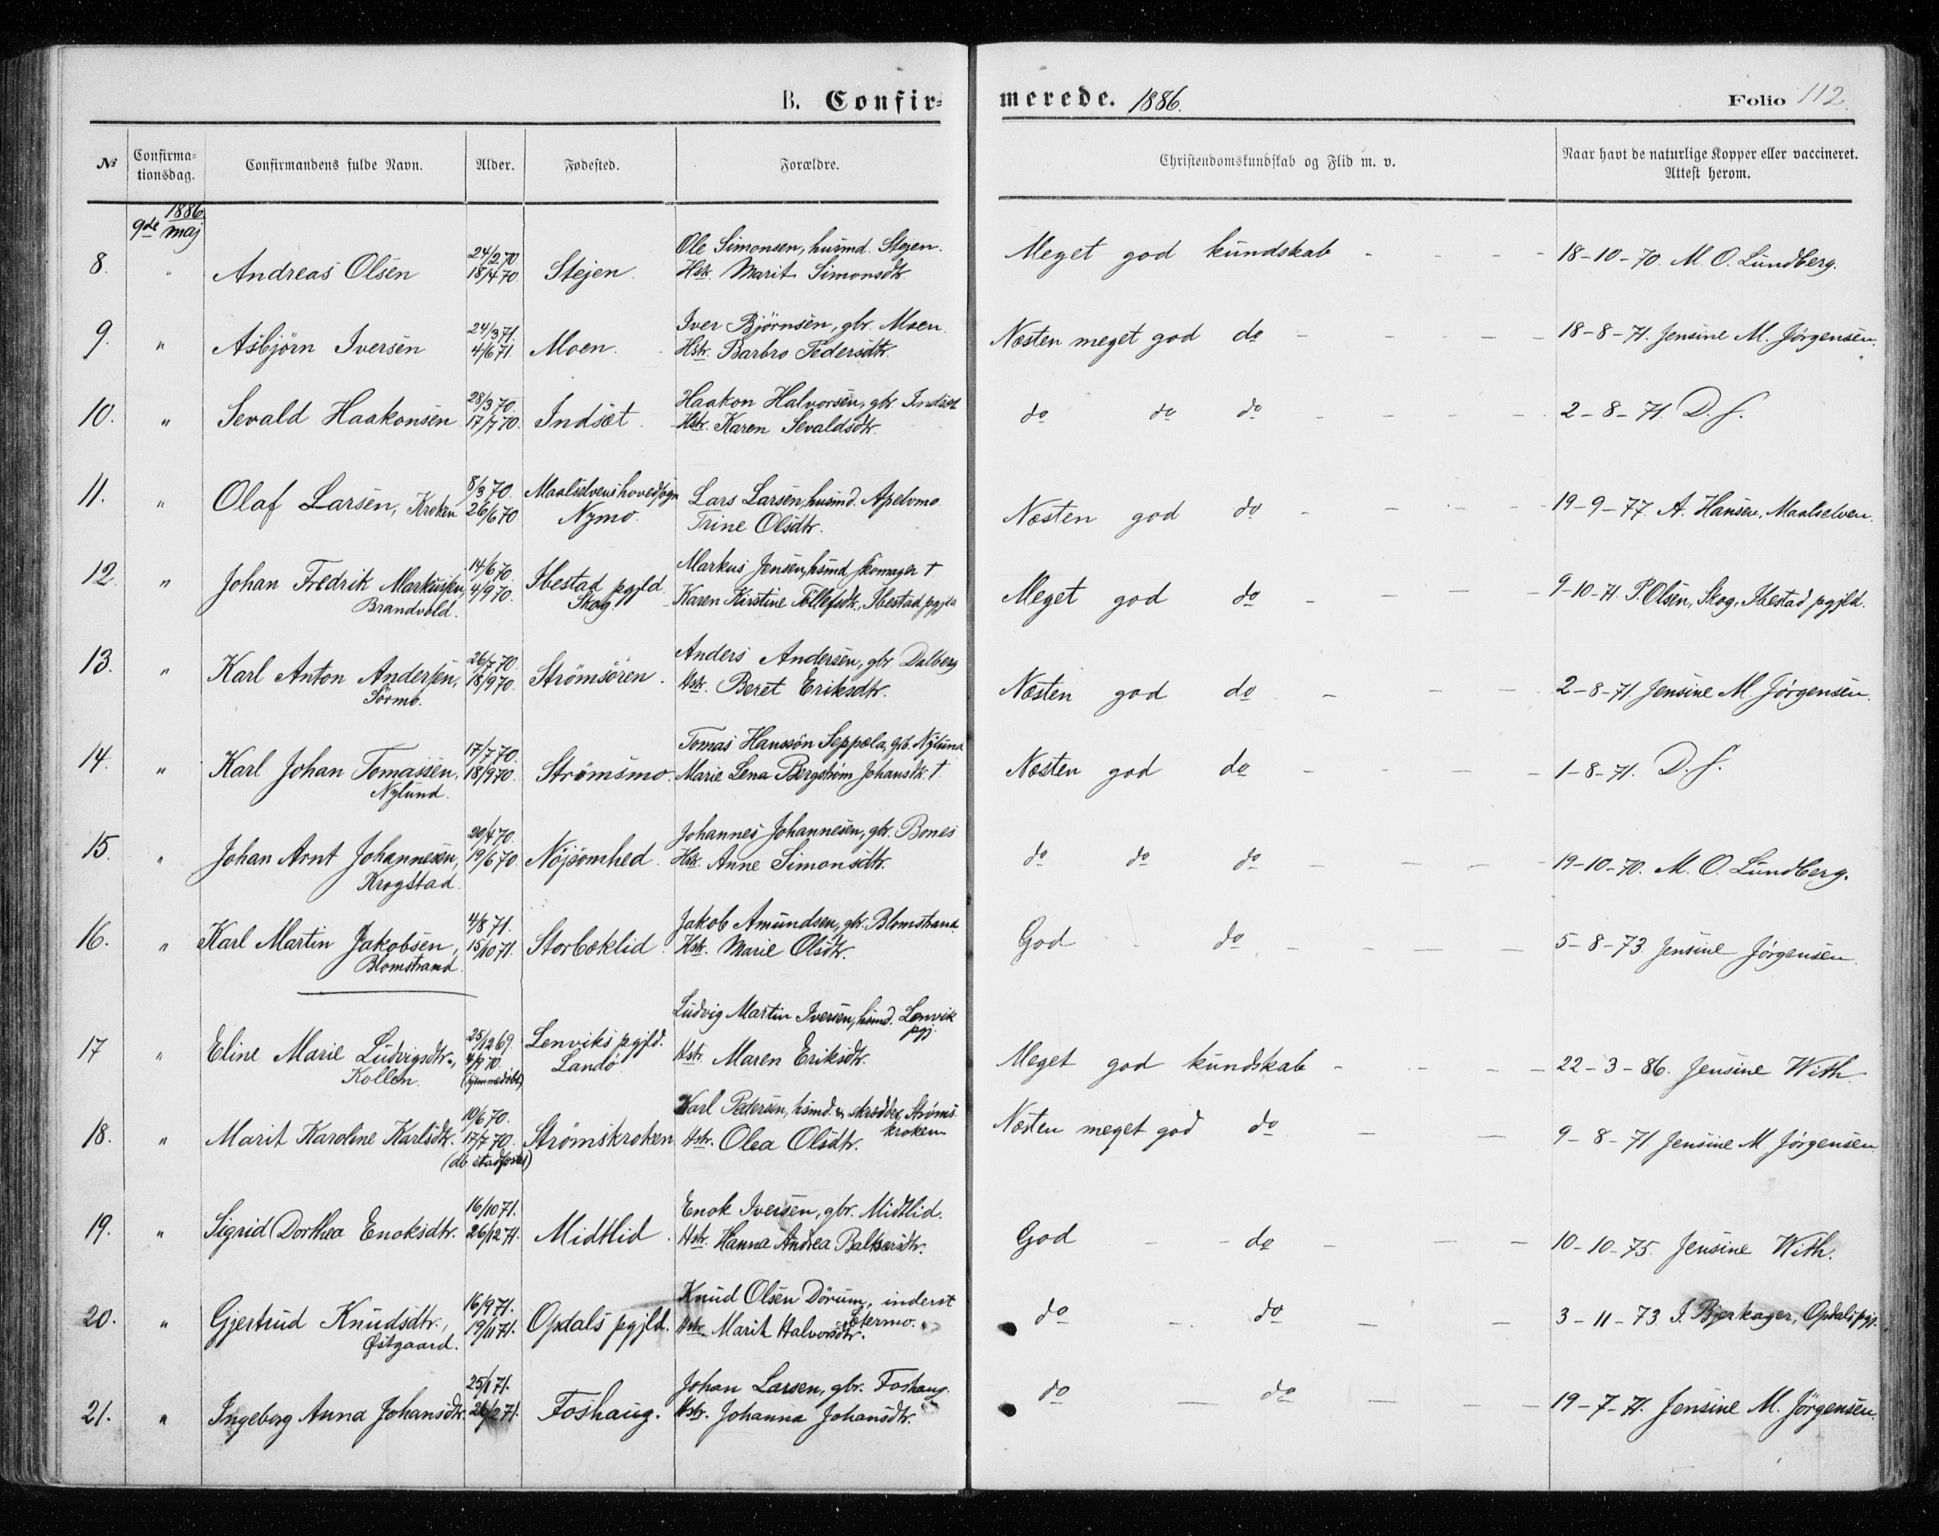 B. Confirmerede. 1886. Folio 112.
№ Confirmationsdag. Confirmandens fulde Navn. Alder. Fødested. Forældre. Christendomskundskab og Flid m. v. Naar havt de naturlige Kopper eller vaccineret. Attest herom.
1886
9de maj
8. " Andreas Olsen 24/2 70. 18/4 70. Stejen. Ole Simonsen, husmd. Stejen. Hstr. Marit Simonsdtr. Meget god kundskab - - - - 18-10-70. M. O. Lundberg.
9. " Asbjörn Iversen 24/3 71. 4/6 71 Moen. Iver Bjørnsen, gbr. Moen. Hstr. Barbro Pedersdtr. Næsten meget god do - - - - 18-8-71. Jensine M. Jørgensen.
10. " Sevald Haakonsen 28/3 70. 17/7 70. Indsæt. Haakon Halvorsen, gbr. Indset Hstr. Karen Sevaldsdtr. do do do - - - - 2-8-71. D. s.
11. " Olaf Larsen, Kroken 8/3 70. 26/6 70 Maalselvens hovedsogn Nymo. Lars Larsen, husmd. Apelvmo. Trine Olsdtr. Næsten god do - - - - 19-9-77. A. Hansen, Maalselven.
12. " Johan Fredrik Markussen, Brandvold. 14/6 70. 4/9 70. Ibestad pgjld. Skog Markus Jensen, husmd skomager † Karen Kirstine Tollefsdtr, Ibestad pgjld Meget god do - - - - 9-10-71. P. Olsen, Skog, Ibestad pgjld.
13. " Karl Anton Andersen, Sörmo. 26/7 70. 18/9 70. Strömsören. Anders Andersen, gbr. Dalberg Hstr. Beret Eriksdtr. Næsten god do - - - 2-8-71. Jensine M. Jørgensen.
14. " Karl Johan Tomassen, Nylund. 17/7 70. 18/9 70. Strömsmo. Tomas Hanssön Seppæla, gb. Nylund Marie Lena Bergstrøm Johansdtr. † Næsten god do - - - - 1-8-71. D. s.
15. " Johan Arnt Johannesen, Krogstad. 20/4 70. 19/6 70 Nöjsomhed. Johannes Johannesen, gbr. Bones Hstr. Anne Simonsdtr. do do do - - - - 19-10-70. M. O. Lundberg.
16. " Karl Martin Jakobsen, Blomstrand. 4/8 71. 15/10 71. Storbæklid. Jakob Amundsen, gbr. Blomstrand. Hstr. Marie Olsdtr. God - do - - - - 5-8-73. Jensine Jørgensen.
17 " Eline Marie Ludvigsdtr., Kollen. 25/12 69. 4/9 70. (hjemmedöbt) Lenviks pgjld. Landö Ludvig Martin Iversen, husmd. Lenvik pgj. Hstr. Maren Eriksdtr. Meget god kundskab - - - - 22-3-86. Jensine With.
18. " Marit Karoline Karlsdtr. 10/6 70. 17/7 70. (db stadfæstet) Strömskroken Karl Petersen, husmd. & skrædder, Strömskroken Hstr. Olea Olsdtr. Næsten meget god do - - 9-8-71 Jensine M Jørgensen
19. " Sigrid Dorthea Enoksdtr. 16/10 71. 26/12 71. Midtlid. Enok Iversen, gbr. Midtlid. Hstr. Hanna Andrea Baltzersdtr. God - - do - - - 10-10-75. Jensine With.
20. " Gjertrud Knudsdtr., Østgaard. 16/9 71. 19/11 71. Opdals pgjld. Knud Olsen Dörum, inderst Sætermo. Hstr Marit Halvorsdtr. do - - do - - 3-11-73. I. Bjerkager, Opdals pgj.
21. " Ingeborg Anna Johansdtr. 25/1 71. 26/2 71. Foshaug. Johan Larsen, gbr. Foshaug. Hstr. Johanna Johansdtr. do - - do - - - - 19-7-71. Jensine M. Jørgensen.